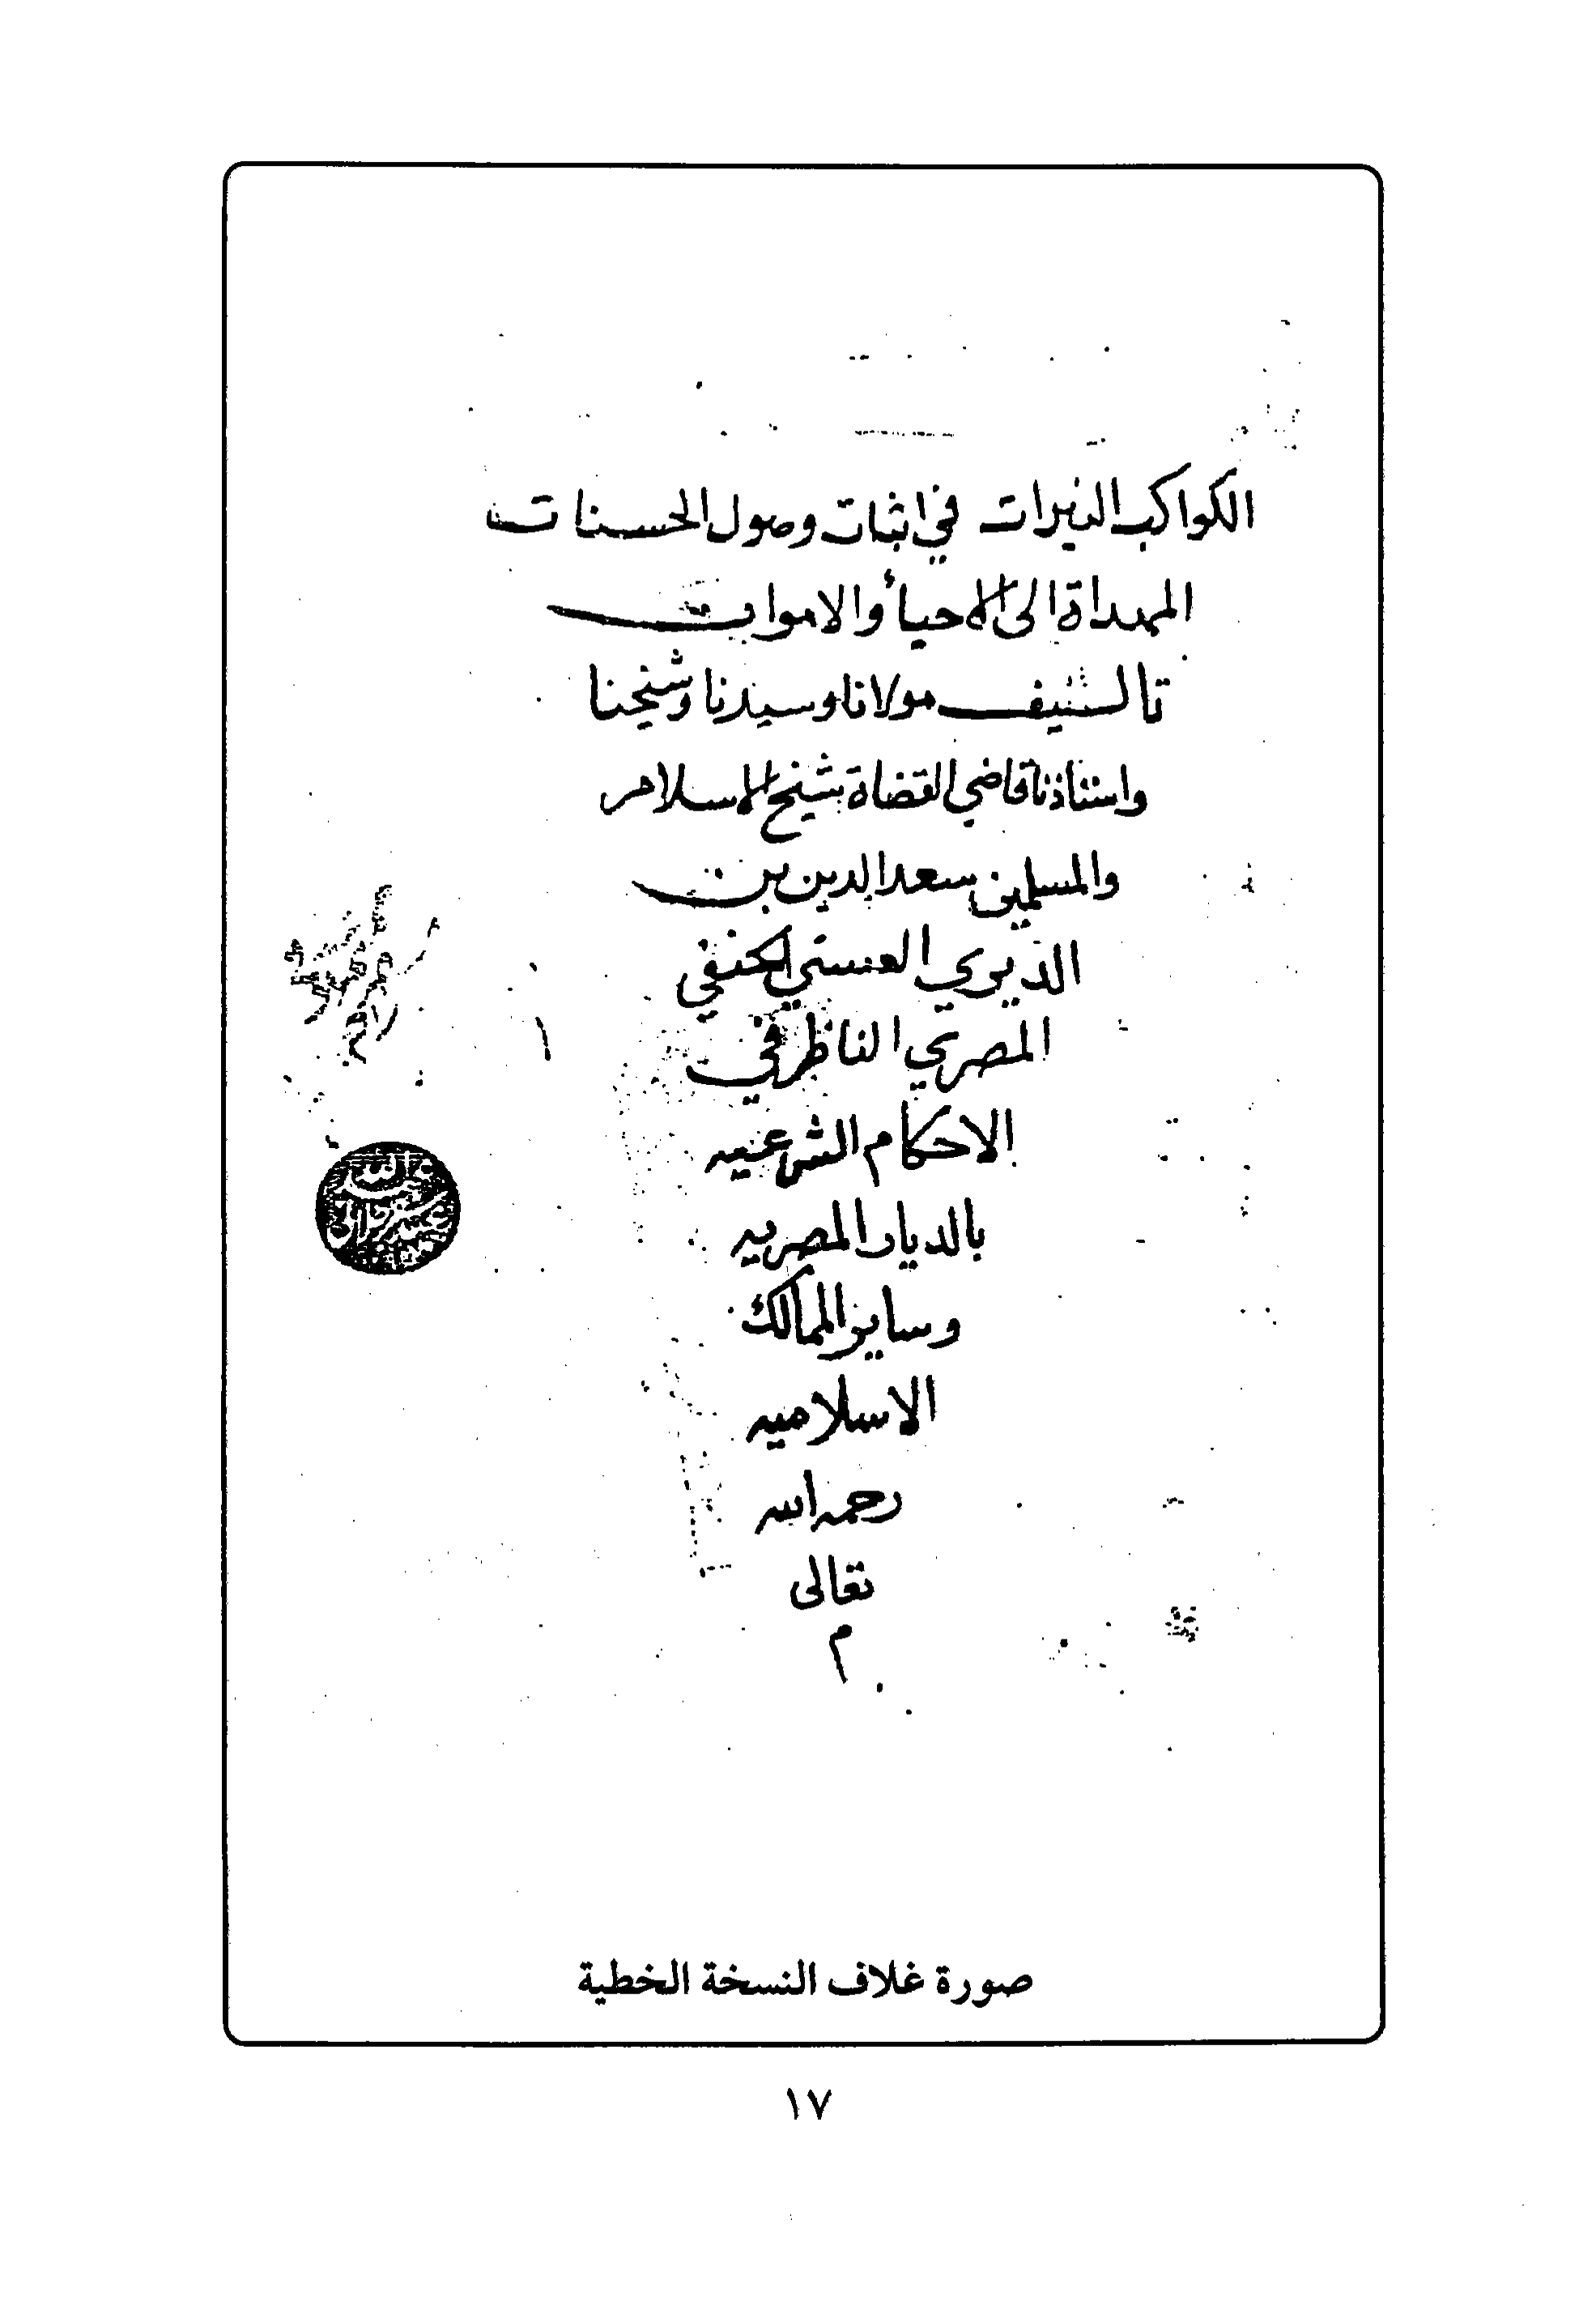 الكواكب النيرات في اثبات وصول الحسنات
المهداة الى الاحياء والاموات
تاليف مولانا وسيدنا وشيخنا
واستاذنا قاضي القضاة شيخ الاسلام
والمسلمين سعد الدين بن
الديري العبسي الحنفي
المصري الناظر في
الاحكام الشرعيه
بالديار المصريه
وساير الممالك
الاسلاميه
رحمه الله
تعالى
م
صورة غلاف النسخة الخطية
١٧